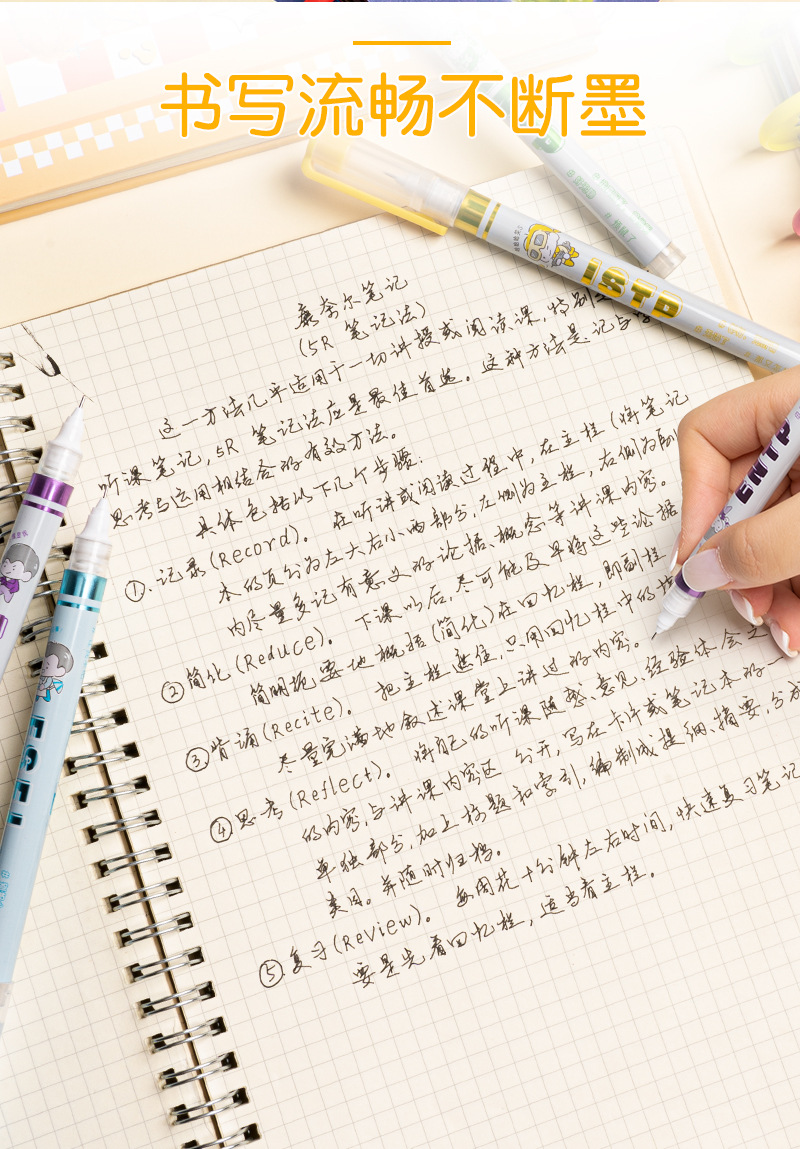 书写流畅不断墨
ISTP
ENTP
康奈尔笔记
(5R 笔记法)
这一方法几乎适用于一切讲授或阅读课,特别
听课笔记,5R 笔记法应是最佳首选。这种方法是记与
思考与运用相结合的有效方法。
具体包括以下几个步骤:
①.记录(Record)。在听讲或阅读过程中,在主栏(将笔记
本的页分为左大右小两部分,左侧为主栏,右侧为副
内尽量多记有意义的论据、概念等讲课内容。
②简化(Reduce)。下课以后,尽可能及早将这些论据
简明扼要地概括(简化)在回忆栏,即副栏
③背诵(Recite)。把主栏遮住,只用回忆栏中的
尽量完满地叙述课堂上讲过的内容。
④思考(Reflect)。将自己的听课随感、意见、经验体会之
的内容,与讲课内容区 分开,写在卡片或笔记本的一
单独部分,加上标题和索引,编制成提纲、摘要,分成
类目。并随时归档。
⑤复习(Review)。每周花十分钟左右时间,快速复习笔记
要是先看回忆栏,适当看主栏。